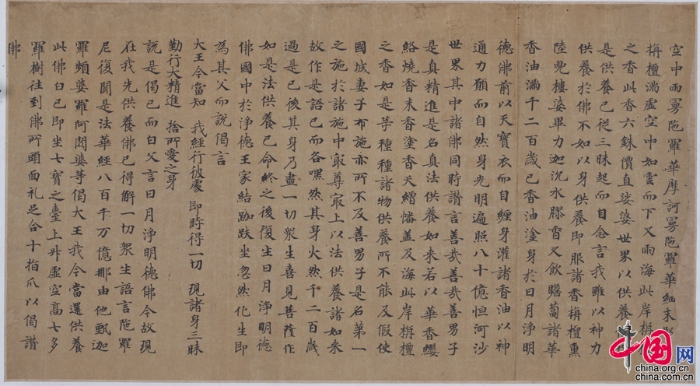 空中雨曼陀羅華摩訶曼陀羅華細末
栴檀滿虛空中如雲而下又雨海此岸栴檀
之香此香六銖價直娑婆世界以供養
是供養已從三昧起而自念言我雖以神力
供養於佛不如以身供養即服諸香栴檀薰
陸兜樓婆畢力迦沉水膠香又飲瞻蔔諸華
香油滿千二百歲已香油塗身於日月淨明
德佛前以天寶衣而自纏身灌諸香油以神
通力願而自然身光明遍照八十億恒河沙
世界其中諸佛同時讚言善哉善哉善男子
是真精進是名真法供養如來若以華香瓔
珞燒香末香塗香天繒幡蓋及海此岸栴檀
之香如是等種種諸物供養所不能及假使
國城妻子布施亦所不及善男子是名第一
之施於諸施中最尊最上以法供養諸如來
故作是語已而各默然其身火然千二百歲
過是已後其身乃盡一切眾生喜見菩薩作
如是法供養已命終之後復生日月淨明德
佛國中於淨德王家結跏趺坐忽然化生即
為其父而說偈言
大王今當知 我經行彼處 即時得一切 現諸身三昧
勤行大精進 捨所愛之身
說是偈已而白父言日月淨明德佛今故現
在我先供養佛已得解一切眾生語言陀羅
尼復聞是法華經八百千万億那由他甄迦
羅頻婆羅阿閦婆等偈大王我今當還供養
此佛白已即坐七寶之臺上升虛空高七多
羅樹往到佛所頭面礼足合十指爪以偈讚
佛
中国网
china.org.cn
china.com.cn